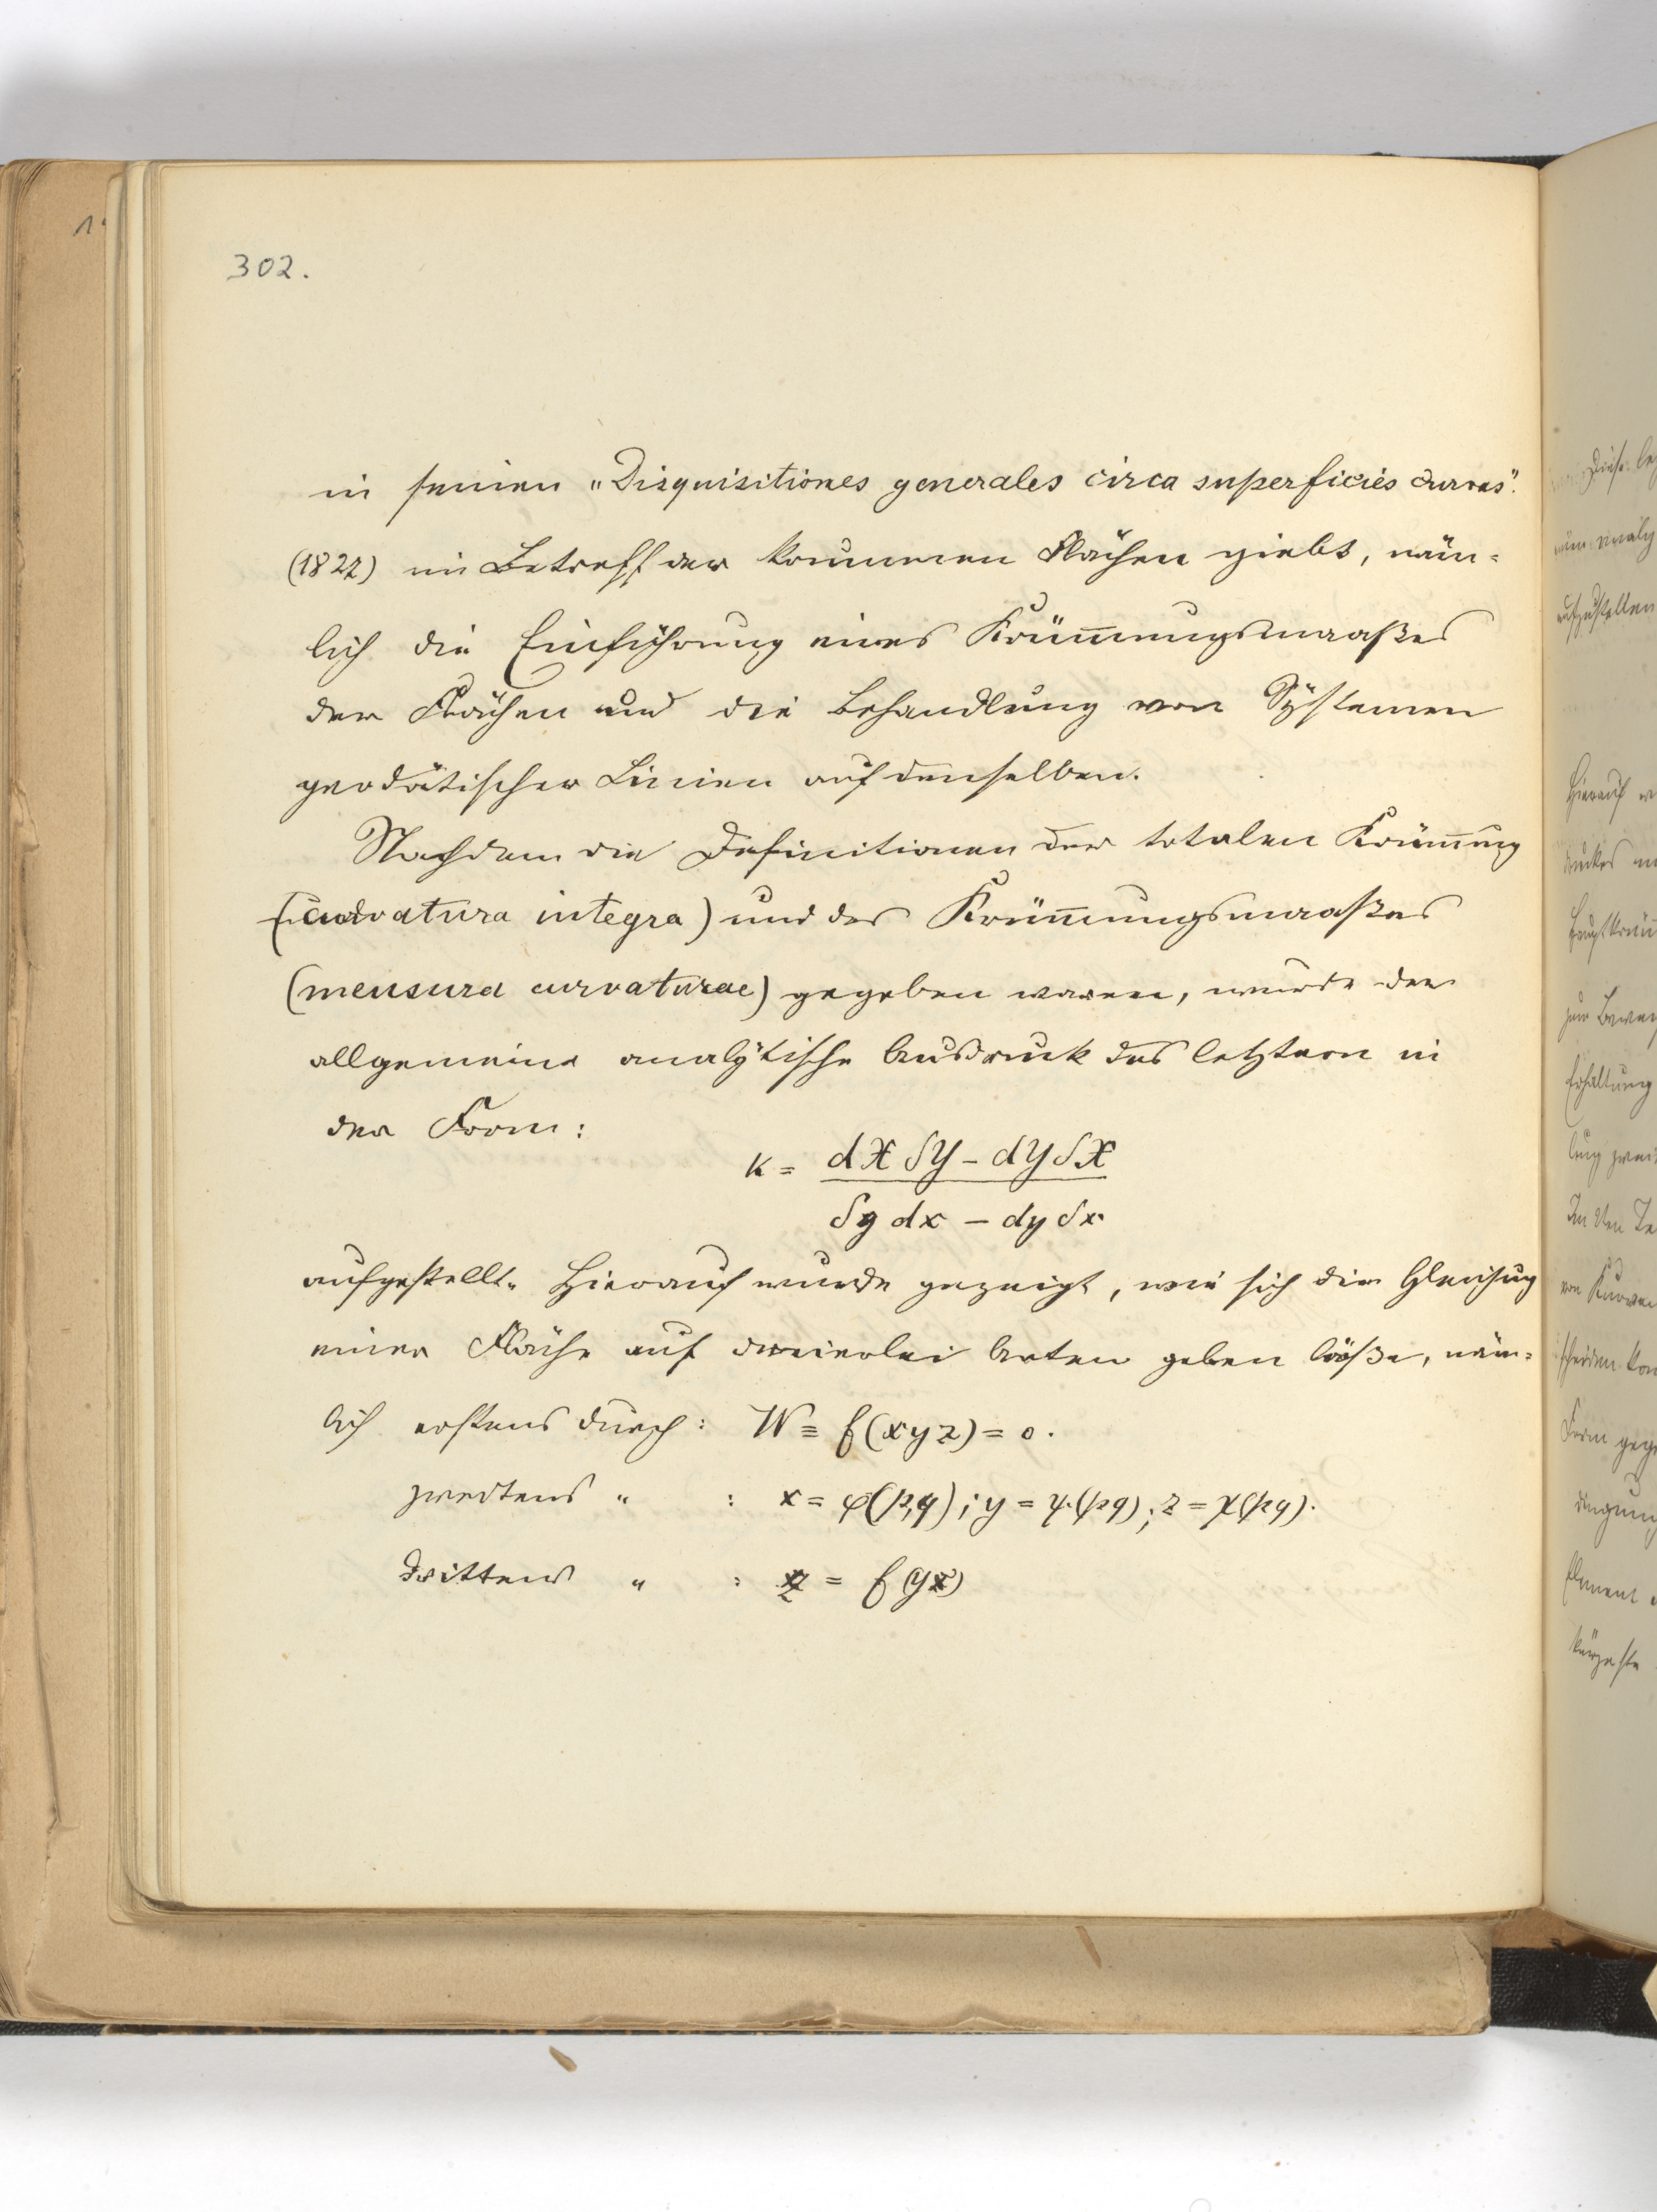 302.
in seinen „Disquisitiones generales circa superficies curvas".
(1827) in Betreff der krummen Flächen giebt, näm-
lich die Einführung eines Krüm̅ungsmaaßes
der Flächen und die Behandlung von Systemen
geodätischer Linien auf denselben.
Nachdem die Definitionen der totalen Krüm̅ung
(curvatura integra) und des Krüm̅ungsmaaßes
(mensura curvaturae) gegeben waren, wurde der
allgemeine analytische Ausdruck des letztern in
der Form:
k = dX δY – dY δX
δy dx – dy δx
aufgestellt. Hierauf wurde gezeigt, wie sich die Gleichung
einer Fläche auf dreierlei Arten geben ließe, näm-
lich erstens durch: W ≡ f(xyz) = 0.
zweitens „ : x = φ(p,q); y = ψ(pq); z = χ(pq).
drittens „ : z = f(yx)
Hierauf
aufzustellen
Erhaltung
Form
Element
kürzeste